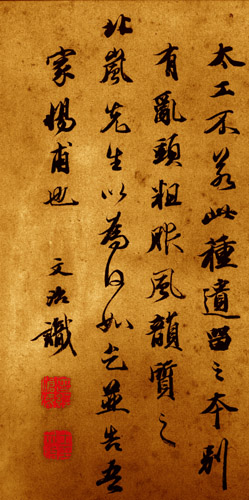 太工不若此種遺留之本別
有亂頭粗服風韻質之
北嵐先生以為何如乞並告吾
家惕甫也
文治識